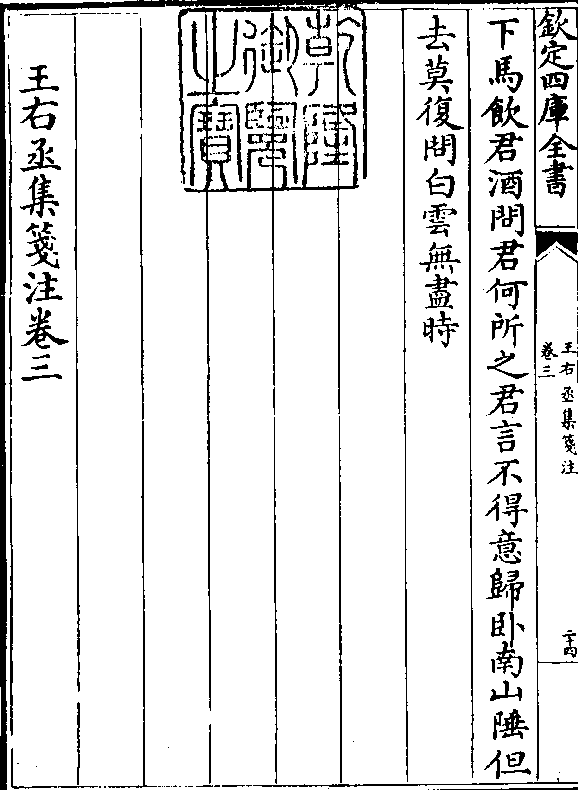 欽定四庫全書
王右丞集箋注
卷三
二十四
下馬飲君酒問君何所之君言不得意歸卧南山陲但
去莫復問白雲無盡時
乾隆
御覽
之寶
王右丞集箋注卷三